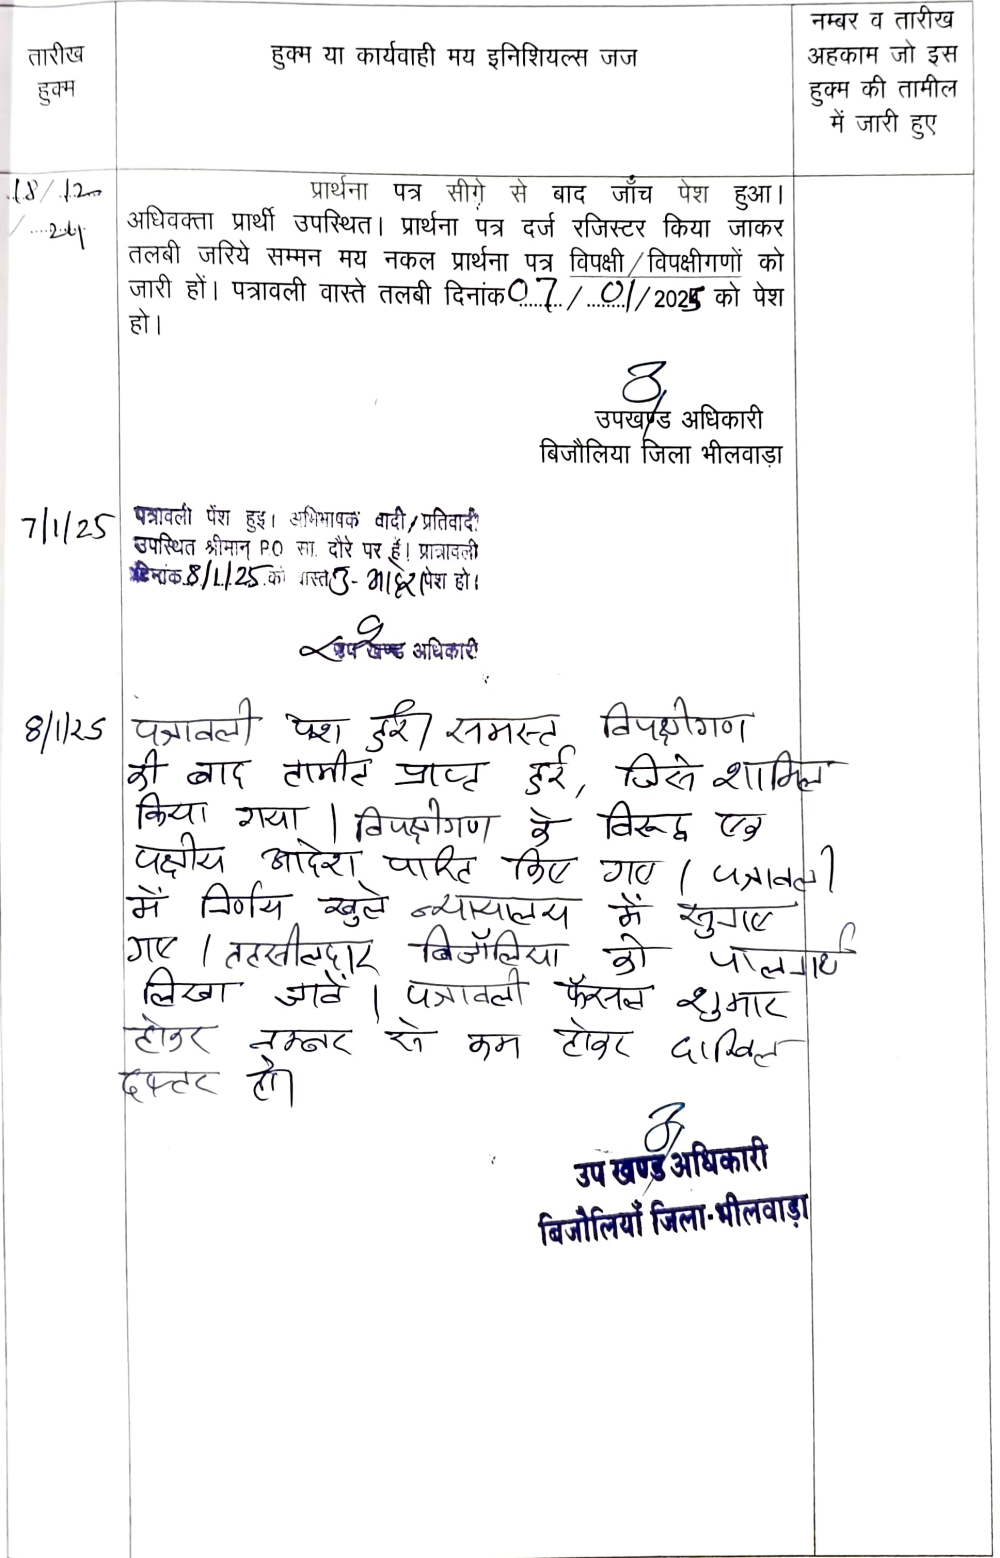 तारीख
हुक्म
हुक्म या कार्यवाही मय इनिशियल्स जज
नम्बर व तारीख
अहकाम जो इस
हुक्म की तामील
में जारी हुए
18/12
/24
प्रार्थना पत्र सीगे़ से बाद जाँच पेश हुआ।
अधिवक्ता प्रार्थी उपस्थित। प्रार्थना पत्र दर्ज रजिस्टर किया जाकर
तलबी जरिये सम्मन मय नकल प्रार्थना पत्र विपक्षी/विपक्षीगणों को
जारी हों। पत्रावली वास्ते तलबी दिनांक 07/01/2025 को पेश
हो।
उपखण्ड अधिकारी
बिजौलिया जिला भीलवाड़ा
7/1/25
पत्रावली पेंश हुइ। अभिभाषक वादी/प्रतिवादी
उपस्थित श्रीमान् P.O सा. दौरे पर हैं। प्रात्रावली
दिनांक 8/1/25 को वास्ते पेश हो।
उप खण्ड अधिकारी
8/1/25
पत्रावली पेश हुई। समस्त विपक्षीगण
की बाद तामील प्राप्त हुई, जिसे शामिल
किया गया। विपक्षीगण के विरूद्ध एक
पक्षीय आदेश पारित किए गए। पत्रावली
में निर्णय खुले न्यायालय में सुनाए
गए। तहसीलदार बिजौलिया को पालनार्थ
लिखा जावें। पत्रावली फैसल शुमार
होकर नम्बर से कम होकर दाखिल
दफ्तर हो।
उप खण्ड अधिकारी
बिजौलियाँ जिला-भीलवाड़ा